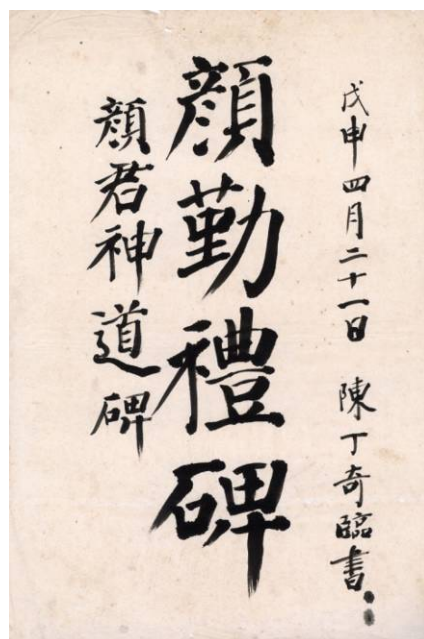 戊申四月二十一日 陳丁奇臨書
顏勤禮碑
顏君神道碑